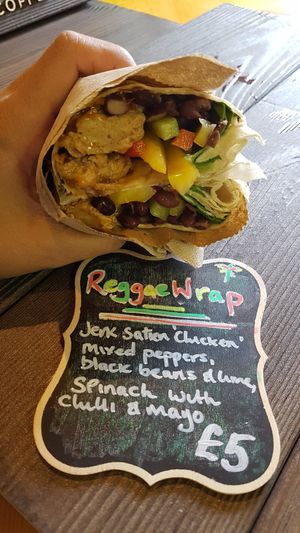 COFFE
Reggae Wrap
Jerk Satien 'Chicken'
mixed peppers,
black beans & lime,
Spinach with
chilli & mayo
£5